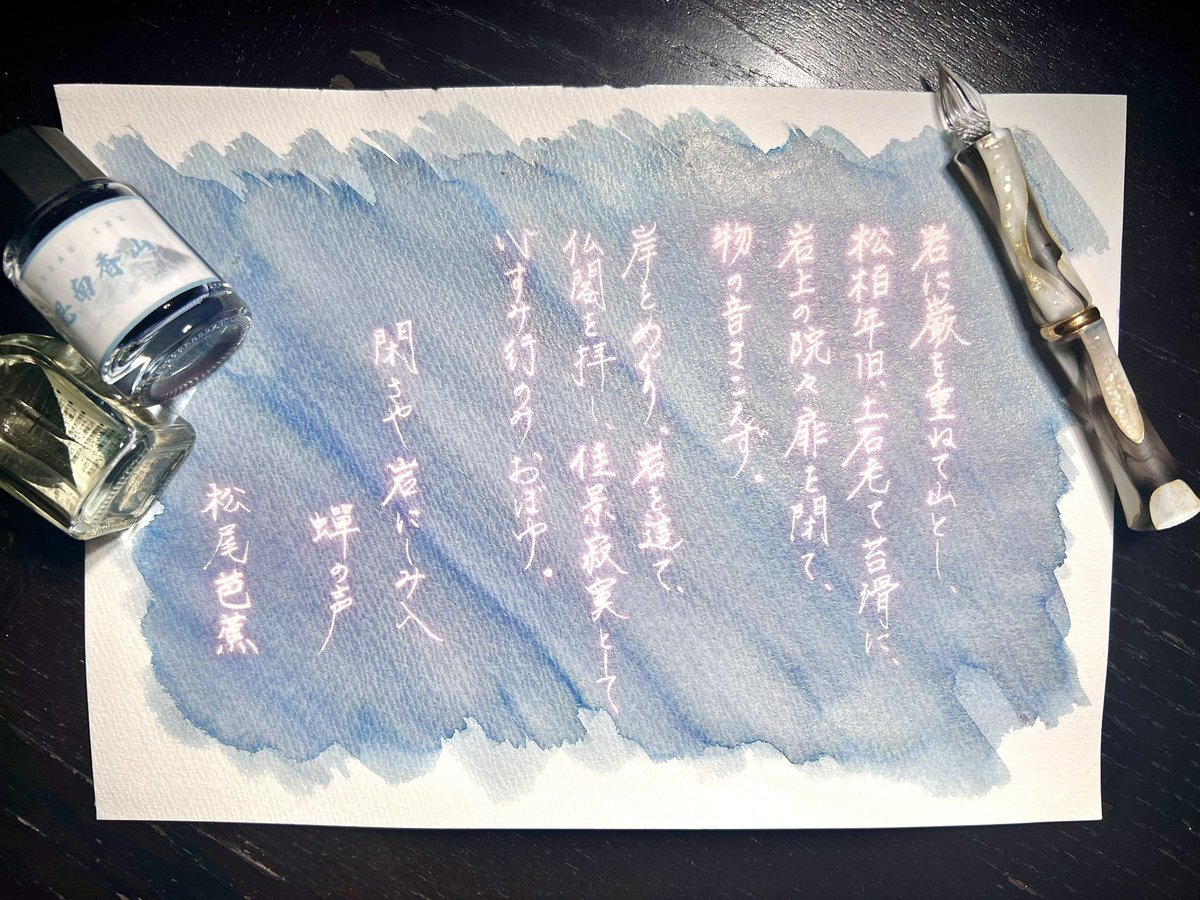 岩に巌を重ねて山とし、
松柏年旧、土石老て苔滑に、
岩上の院々扉を閉て、
物の音きこえず。
岸をめぐり、岩を這て、
仏閣を拝し、佳景寂寞として
心すみ行のみおぼゆ。
閑さや 岩にしみ入
蝉の声
松尾芭蕉
南香山